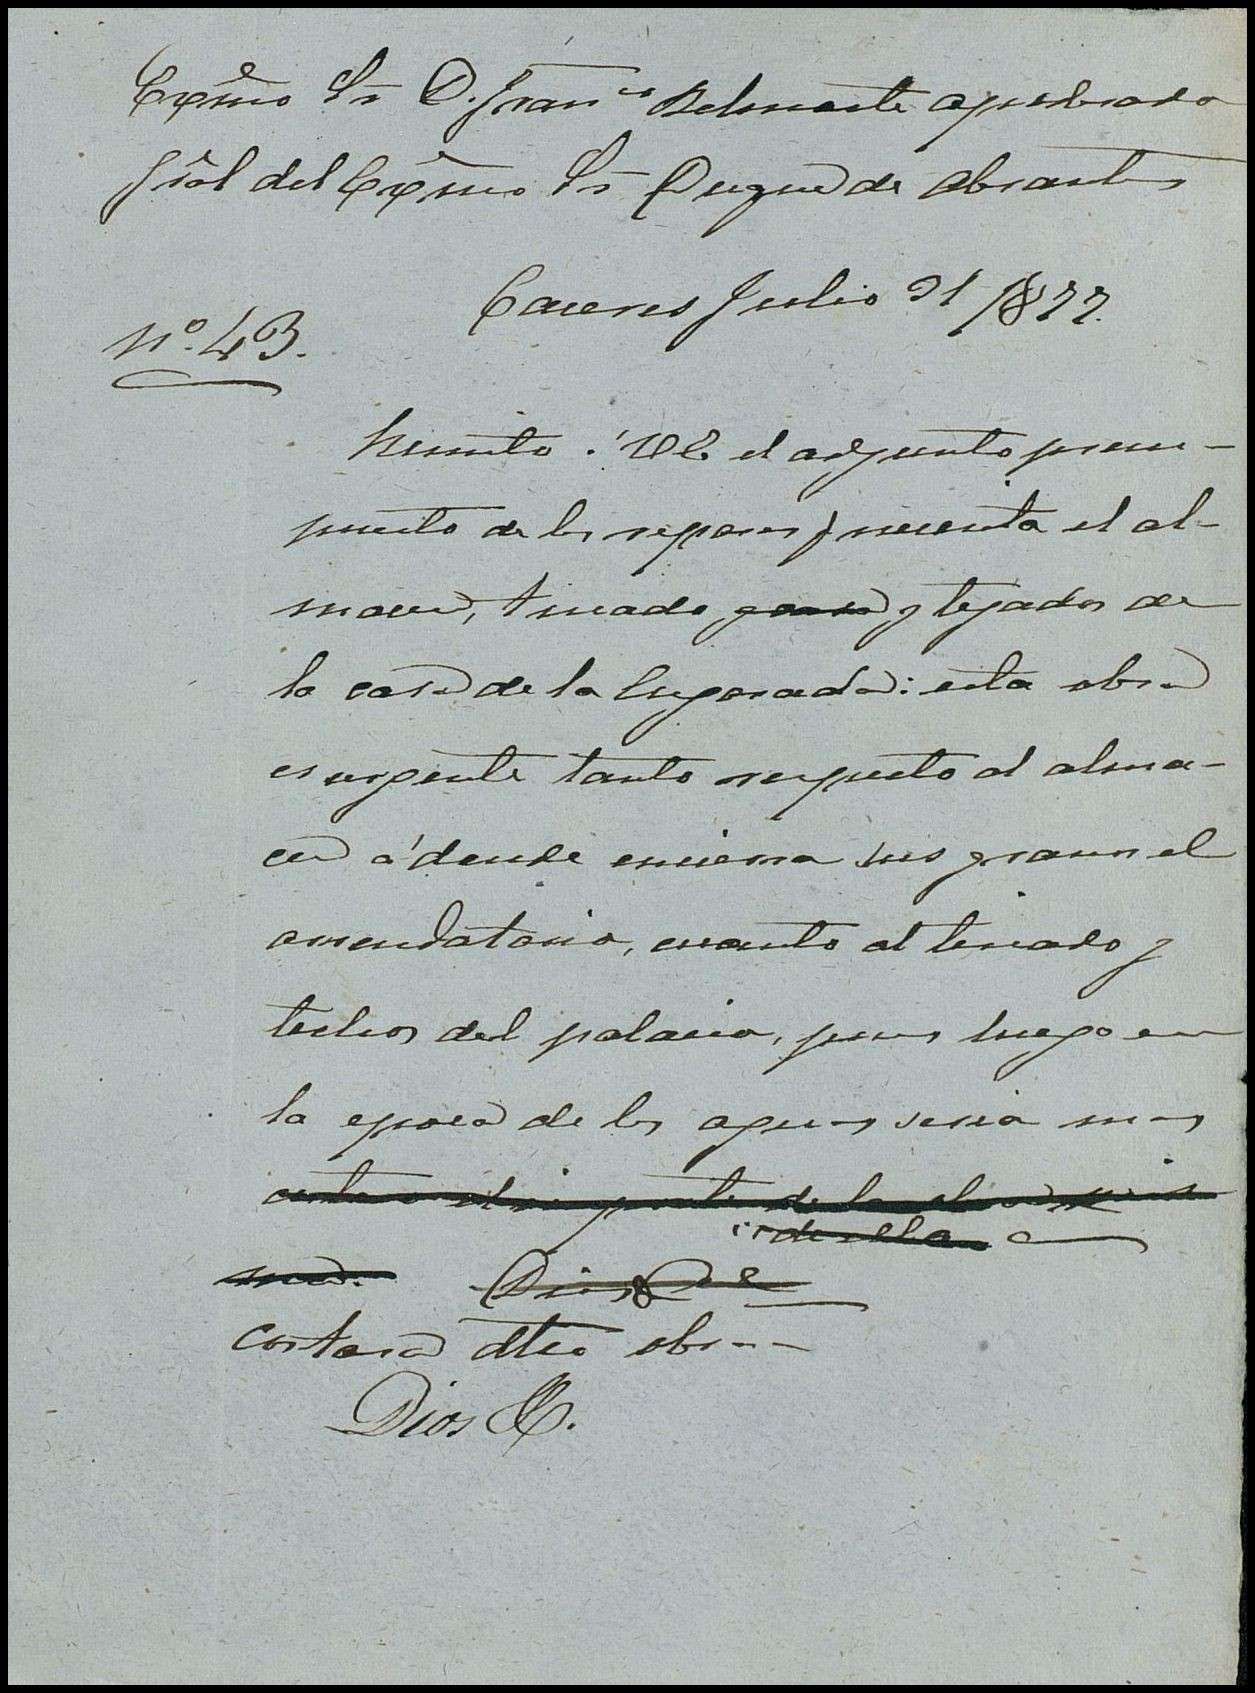 Exm̂o Sr. D. Franco Belmonte apoderado
Grâl del Exm̂o Sr. Duque de Abrantes
Caceres Julio 31/1877.
No. 43.
Remito á VE. el adjunto presu-
puesto de los reparos q necesita el al-
macen, tinado y tejados de
la casa de la Enjarada: esta obra
es urgente tanto respecto al alma-
cen á donde encierra sus granos el
arrendatario, cuanto al tinado y
techos del palacio, pues luego en
la epoca de las aguas seria mas
costosa dha obra
Dios &.